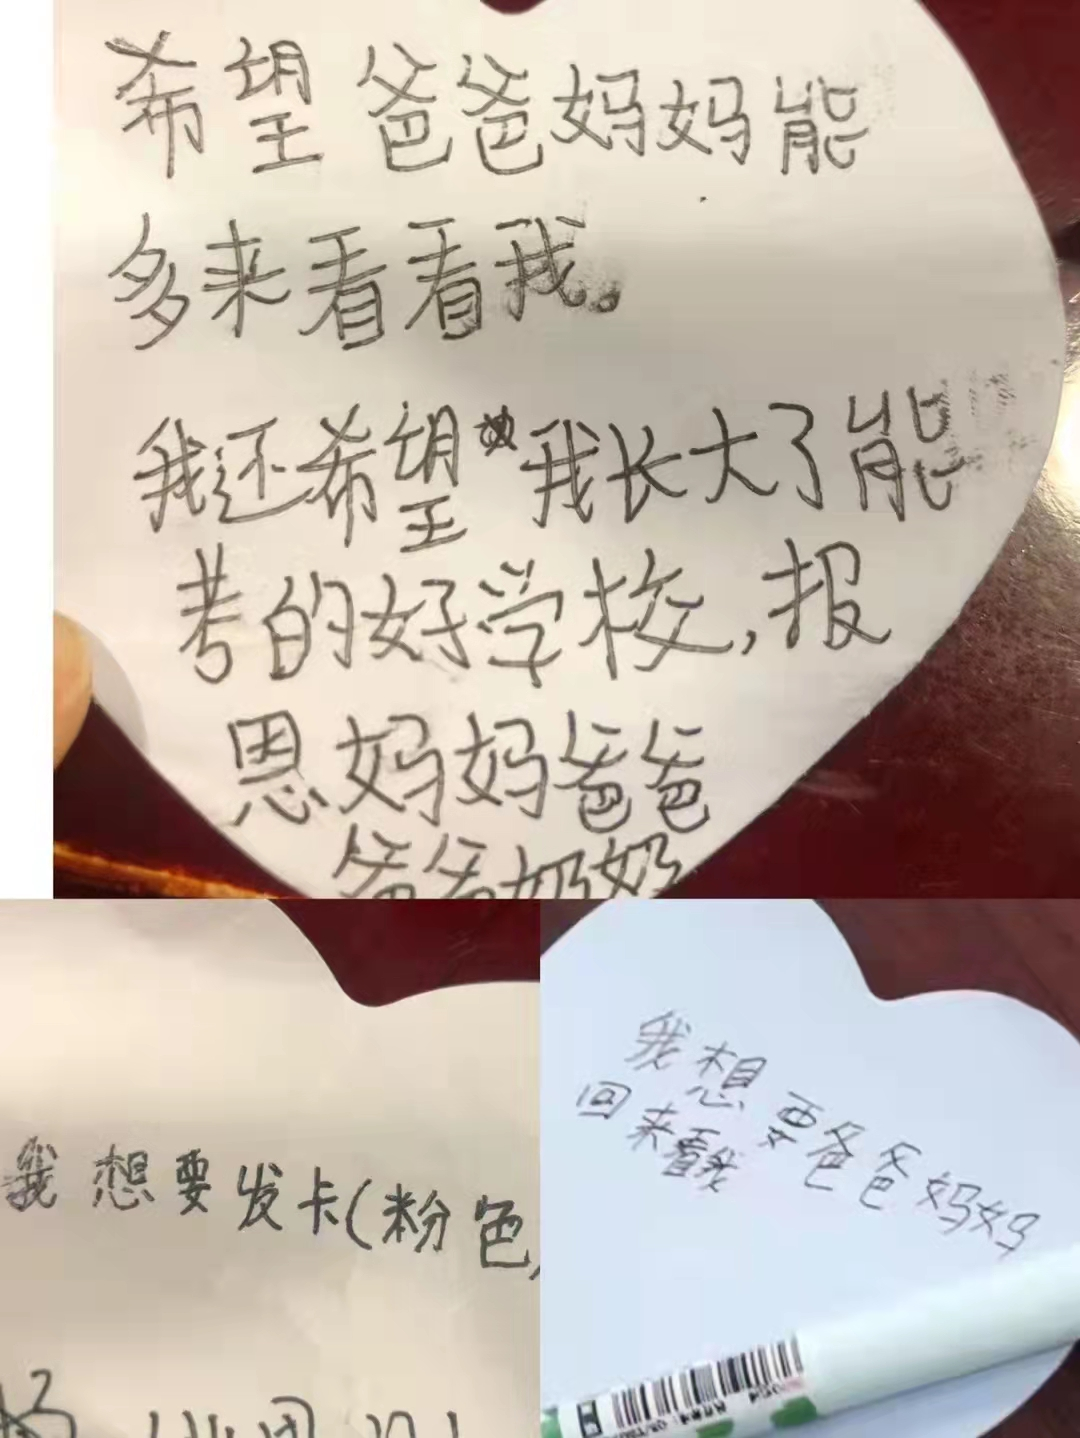 希望爸爸妈妈能
多来看看我。
我还希望我长大了能
考的好学校,报
恩妈妈爸爸
爷爷奶奶
我想要发卡(粉色)
我想要爸爸妈妈
回来看我